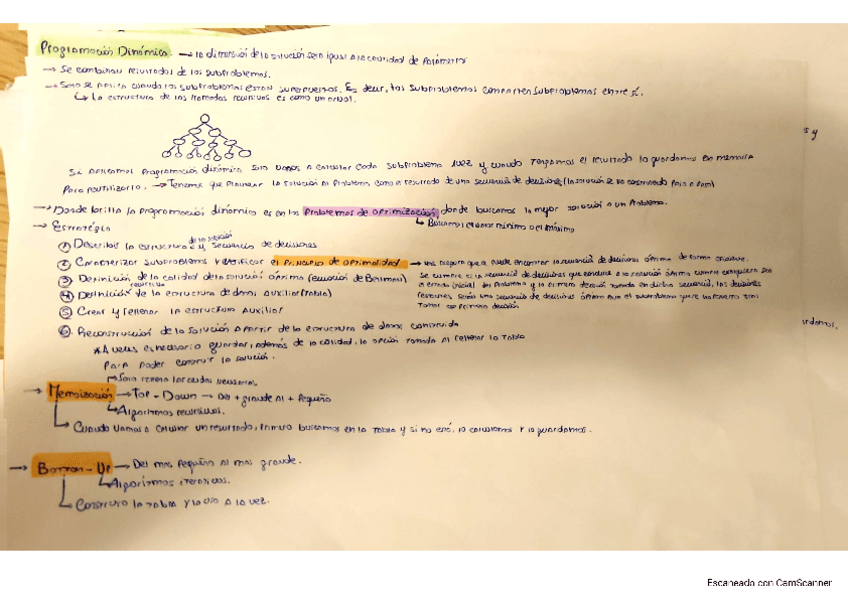 Programación Dinámica. → la dimensión de la solución será igual a la cantidad de parámetros
→ Se combinan resultados de los subproblemas.
→ Solo se aplica cuando los subproblemas están superpuestos. Es decir, los subproblemas comparten subproblemas entre sí.
↳ La estructura de las llamadas recursivas es como un árbol.
s y
Si aplicamos programación dinámica solo vamos a calcular cada subproblema 1 vez y cuando tengamos el resultado lo guardamos en memoria
para reutilizarlo. → Tenemos que plantear la solución al problema como el resultado de una secuencia de decisiones (la solución se va construyendo paso a paso)
→ Donde brilla la programación dinámica es en los problemas de optimización, donde buscamos la mejor solución a un problema.
↳ Buscamos el valor mínimo o el máximo
→ Estrategia
① Describir la estructura de la solución y secuencia de decisiones
② Caracterizar subproblemas y verificar el principio de optimalidad → nos asegura que se puede encontrar la secuencia de decisiones óptima de forma
Se cumple si la secuencia de decisiones que conduce a la solución óptima cumple cualquiera sea
el estado inicial del problema y la primera decisión tomada en dicha secuencia, las decisiones
restantes serán una secuencia de decisiones óptima para el subproblema que se ha resuelto tras
tomar la primera decisión
③ Definición recursiva de la calidad de la solución óptima (ecuación de Bellman)
④ Definición de la estructura de datos auxiliar (tabla)
⑤ Crear y rellenar la estructura auxiliar
⑥ Reconstrucción de la solución a partir de la estructura de datos construida
* A veces es necesario guardar, además de la calidad, la opción tomada al rellenar la tabla
para poder construir la solución.
rdamos,
↱ Solo rellena las celdas necesarias
→ Memoización → Top-Down → Del + grande al + pequeño
↳ Algoritmos recursivos.
↳ Cuando vamos a calcular un resultado, primero buscamos en la tabla y si no está, lo calculamos y lo guardamos.
→ Bottom-Up → Del más pequeño al más grande.
↳ Algoritmos iterativos.
↳ Construyo la tabla y la uso a la vez.
Escaneado con CamScanner